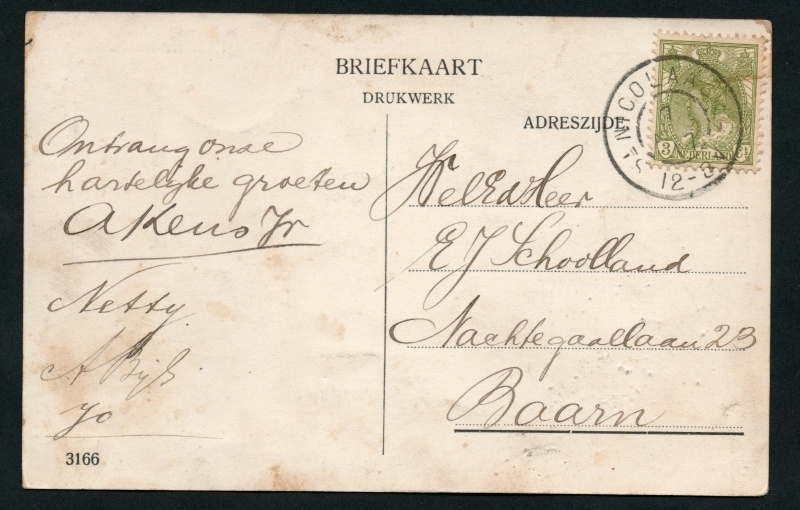 BRIEFKAART
DRUKWERK
ADRESZIJDE
3 NEDERLAND 3
ST NICOLAASGA
12-8
Ontvang onze
hartelijke groeten
A Kens Jr
Netty
A Bijl
Jo
3166
WelEdHeer
E J Schoolland
Nachtegaallaan 23
Baarn